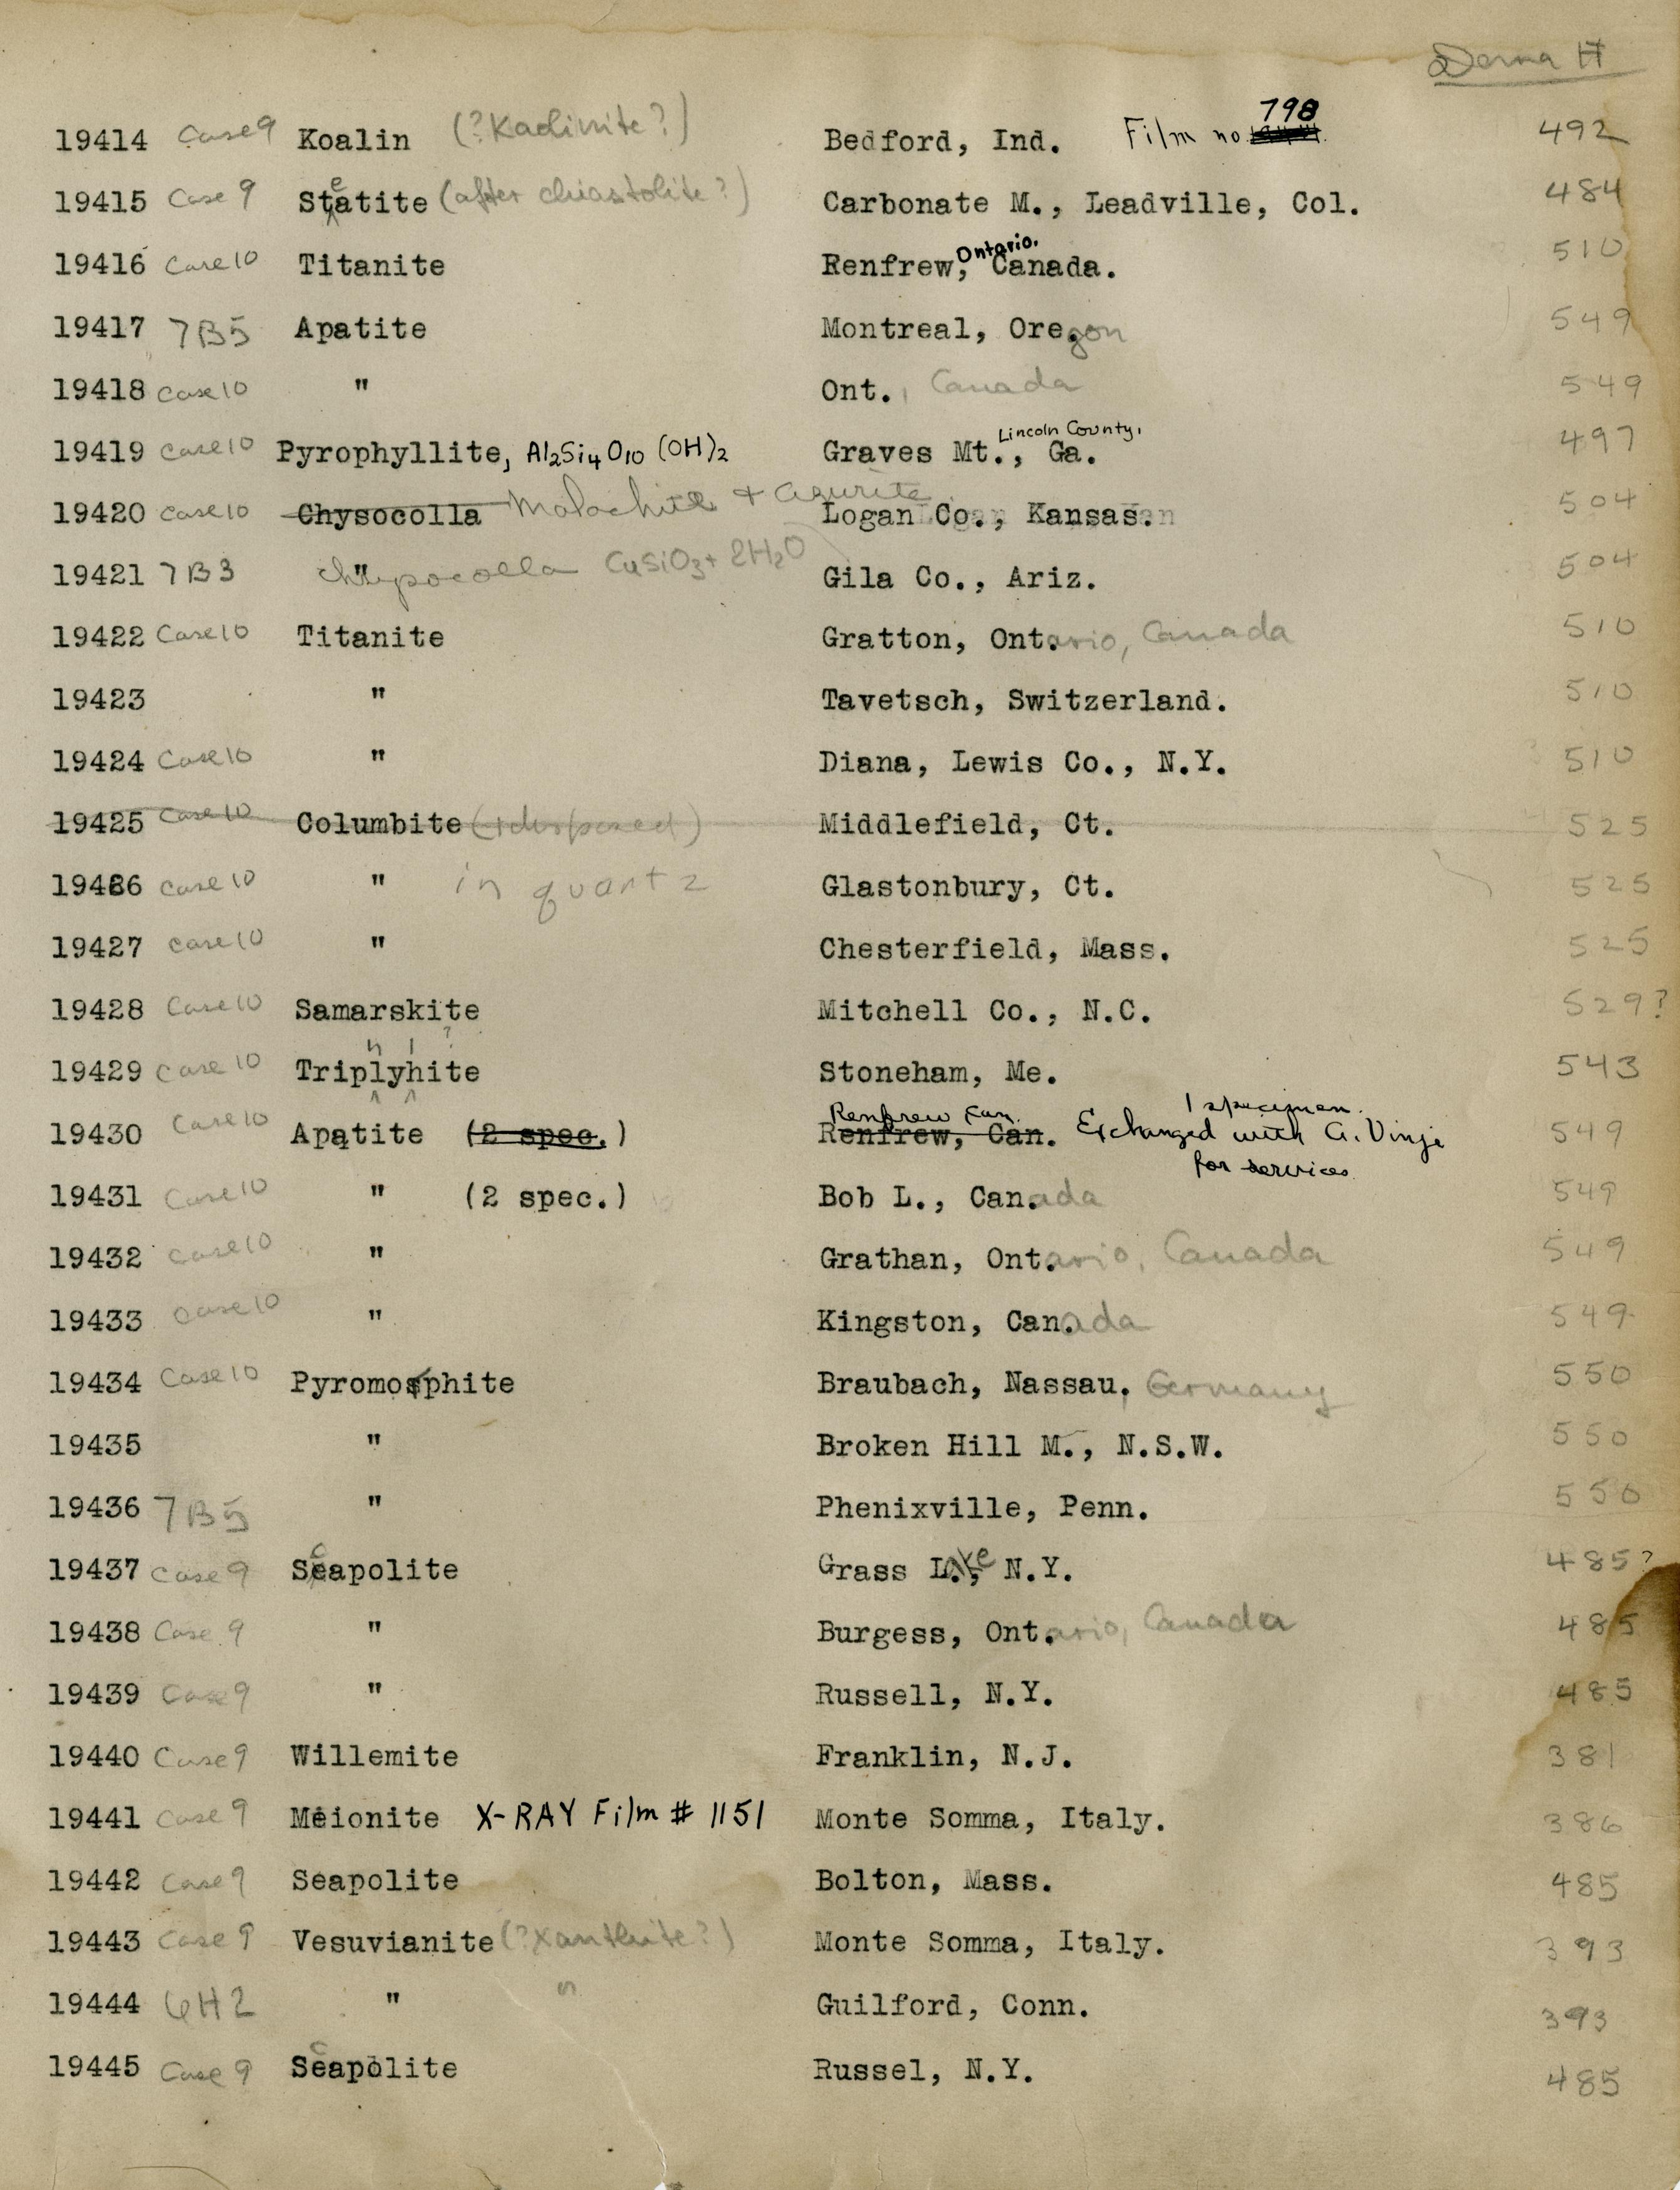 Dana II
19414 Case 9 Koalin (?Kaolinite?) Bedford, Ind. Film no. 798 492
19415 Case 9 Steatite (after chiastolite?) Carbonate M., Leadville, Col. 484
19416 Case 10 Titanite Renfrew, Ontario. Canada. 510
19417 7B5 Apatite Montreal, Oregon 549
19418 Case 10 " Ont., Canada 549
19419 Case 10 Pyrophyllite, Al2Si4O10 (OH)2 Graves Mt., Lincoln County, Ga. 497
19420 Case 10 Chysocolla Malachite + azurite Logan Co., Kansas. 504
19421 7B3 " Chrysocolla CuSiO3 + 2H2O Gila Co., Ariz. 504
19422 Case 10 Titanite Gratton, Ontario, Canada 510
19423 " Tavetsch, Switzerland. 510
19424 Case 10 " Diana, Lewis Co., N.Y. 510
19425 Case 10 Columbite Middlefield, Ct. 525
19426 Case 10 " in quartz Glastonbury, Ct. 525
19427 Case 10 " Chesterfield, Mass. 525
19428 Case 10 Samarskite Mitchell Co., N.C. 529?
19429 Case 10 Triplyhite h l ? Stoneham, Me. 543
19430 Case 10 Apatite (2 spec.) Renfrew, Can. Renfrew Can. 1 specimen. Exchanged with G. Vinje for services 549
19431 Case 10 " (2 spec.) Bob L., Canada 549
19432 Case 10 " Grathan, Ontario, Canada 549
19433 Case 10 " Kingston, Canada 549
19434 Case 10 Pyromosphite Braubach, Nassau, Germany 550
19435 " Broken Hill M., N.S.W. 550
19436 7B5 " Phenixville, Penn. 550
19437 Case 9 Scapolite Grass Lake, N.Y. 485?
19438 Case 9 " Burgess, Ontario, Canada 485
19439 Case 9 " Russell, N.Y. 485
19440 Case 9 Willemite Franklin, N.J. 381
19441 Case 9 Meionite X-RAY Film # 1151 Monte Somma, Italy. 386
19442 Case 9 Seapolite Bolton, Mass. 485
19443 Case 9 Vesuvianite (?Xanthite?) Monte Somma, Italy. 393
19444 6H2 " " Guilford, Conn. 393
19445 Case 9 Scapolite Russel, N.Y. 485